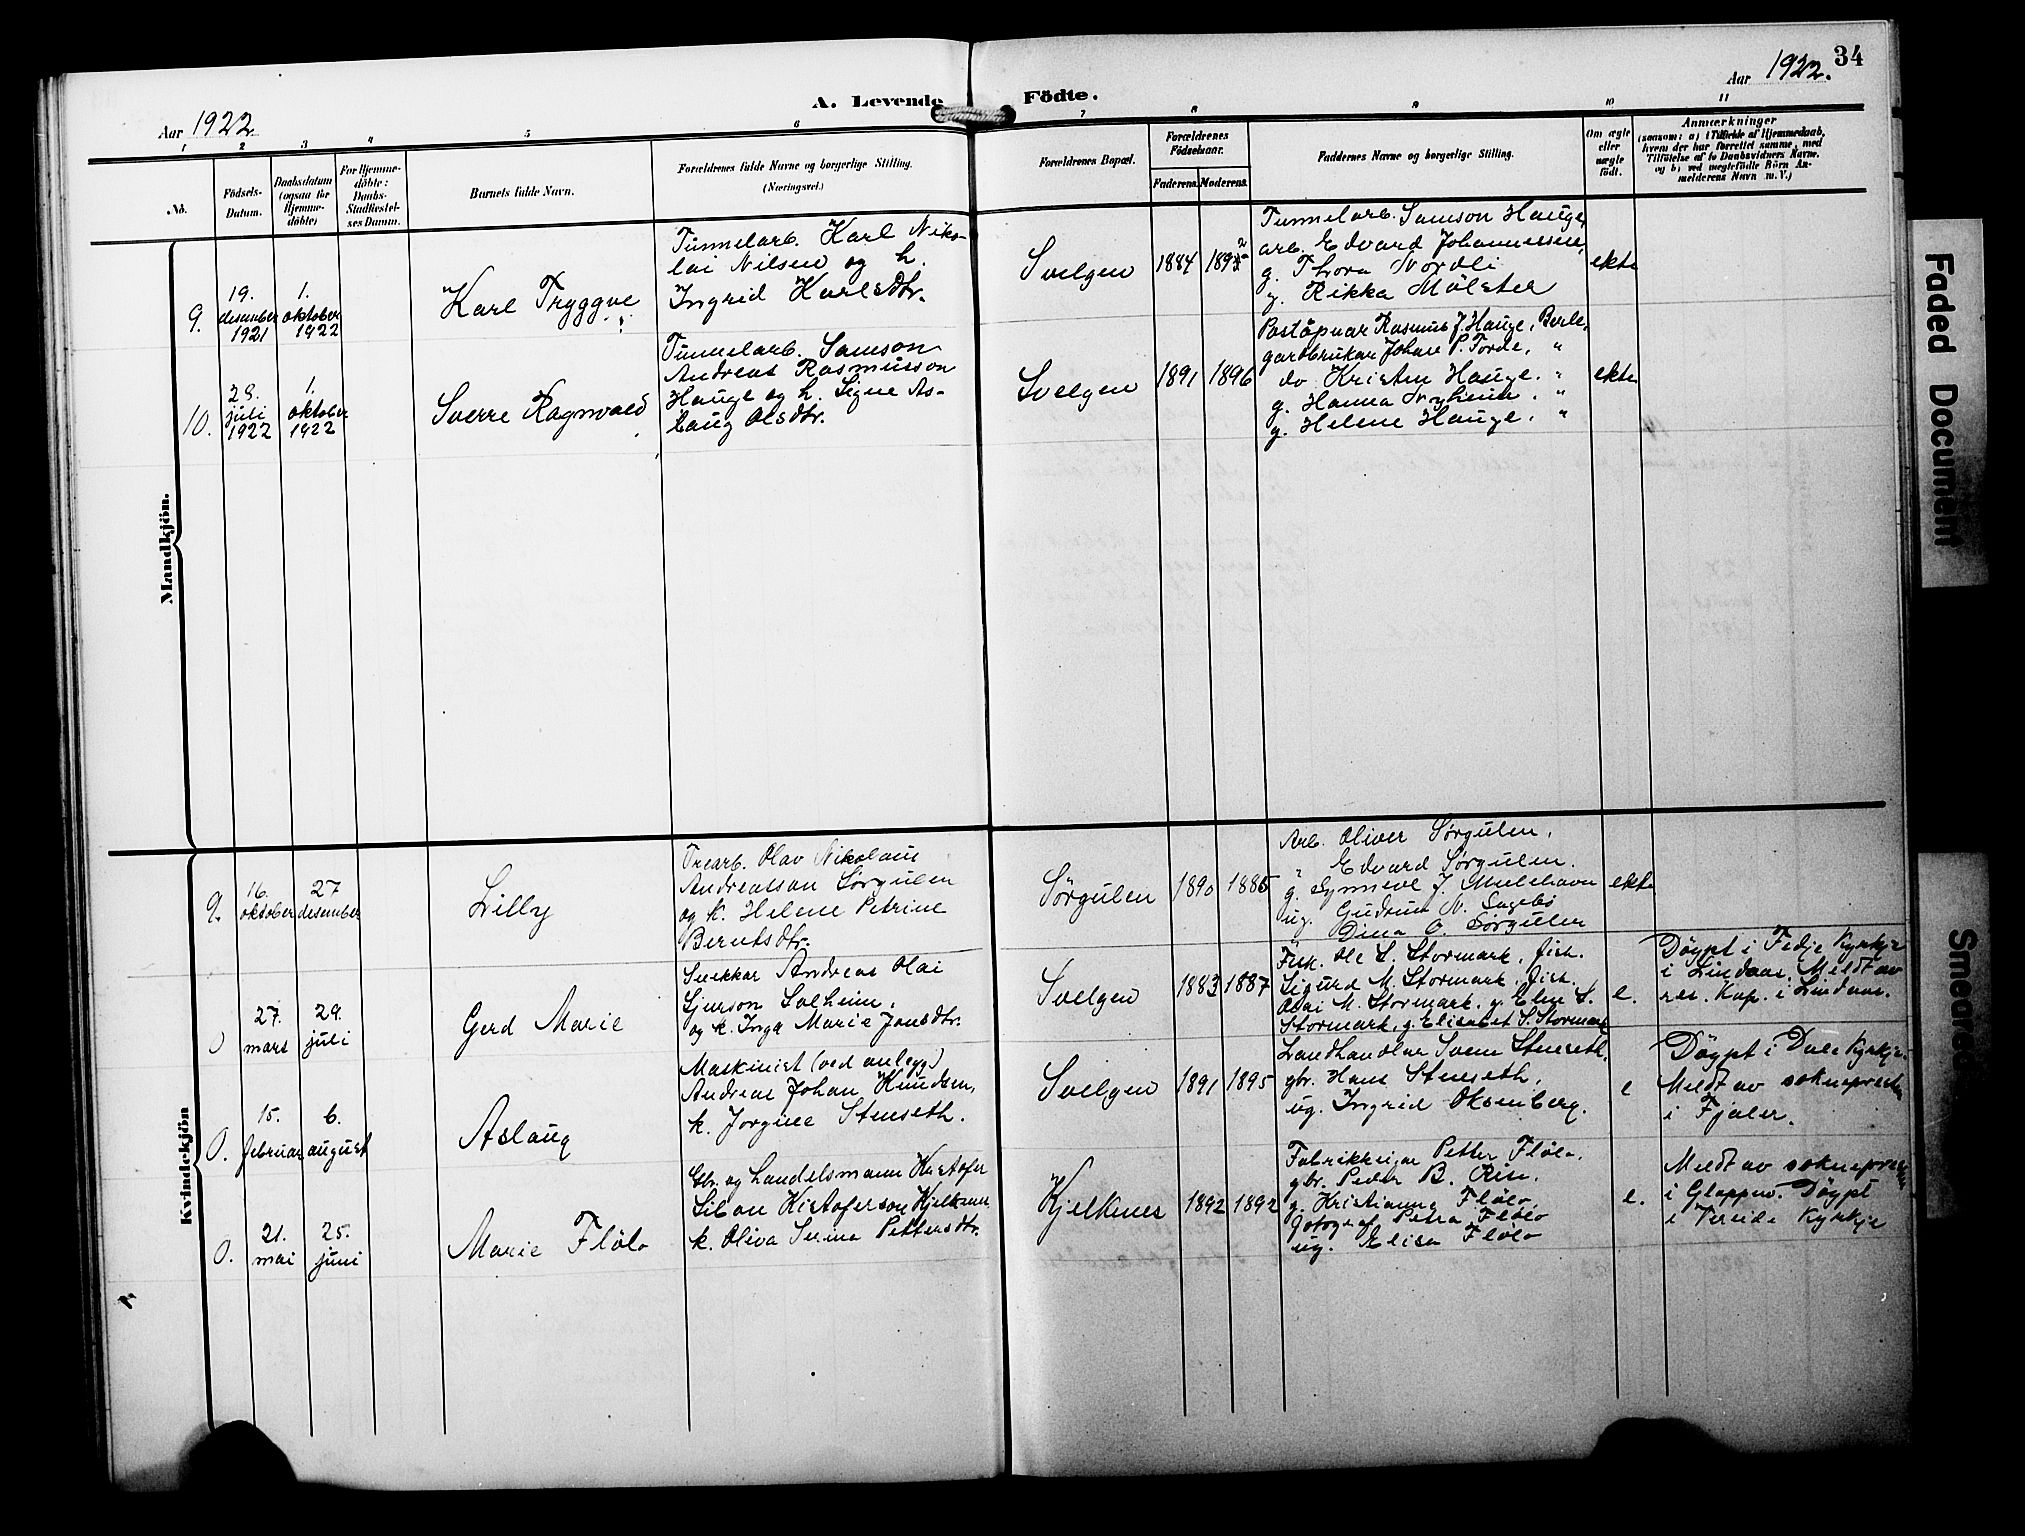 34
Aar 1922.
Aar 1922
A. Levende Födte.
1 2 3 4 5 6 7 8 9 10 11
No.
Födsels-
Datum.
Daabsdatum
(ogsaa for
Hjemme-
döbte)
For Hjemme-
döbte:
Daabs-
Stadfæstel-
ses Datum.
Barnets fulde Navn.
Forældrenes fulde Navne og borgerlige Stilling.
(Næringsvei.)
Forældrenes Bopæl.
Forældrenes
Födselsaar.
Faderens.
Moderens.
Faddernes Navne og borgerlige Stilling.
Om ægte
eller
uægte
født.
Anmærkninger
(saasom: a) i Tilfælde af Hjemmedaab,
hvem der har forrettet samme, med
Tilføielse af to Daabsvidners Navne,
og b) ved uægtefödte Börn An-
melderens Navn m. V.)
Mandkjön.
9.
19.
desember
1921
1.
oktober
1922
Karl Tryggve
Tunnelarb. Karl Niko-
lai Nilsen og h.
Ingrid Karlsdtr.
Svelgen
1884
189
Tunnelarb. Samson Hauge,
arb. Edvard Johannessen,
g. Thora Nordli
g. Rikka Mölster
ekte
10.
28.
juli
1922
1.
oktober
1922
Sverre Ragnvald
Tunnelarb. Samson
Andreas Rasmusson
Hauge og h. Signe As-
laug Olsdtr.
Svelgen
1891
1896
Postöpnar Rasmus J. Hauge, Berle,
gardbrukar Johan P. Torde, "
do Kristen Hauge. "
g. Hanna "
g. Helene Hauge. "
ekte
Kvindekjön
9.
16.
oktober
27
desember
Lilly
Trearb. Olav Nikolaus
Andreassan Sørgulen
og k. Helene Petrine
Berntsdtr.
Sørgulen
1890
1885
Arb. Oliver Sørgulen,
" Edvard Sørgulen.
g. Synneve J. Mulehavn
ug. Gudrun N. Sagebø
Dina O. Sørgulen
ekte
0
27.
mars
29.
juli
Gerd Marie
Snekkar Andreas Olai
Gjerson Solheim,
og k. Inga Marie Jonsdtr.
Svelgen
1883
1887
Fisk. Ole S. Stormark, fisk.
Sigurd M. Stormark, fisk.
Olai M. Stormark, g. Elen S.
Stormark, g. Elisabet S. Stormark
e.
Döypt i Fedje kyrkje
i Lindaas. Meldt av
res. kap. i Lindaas.
0.
15.
februar
6.
august
Aslaug
Maskinist (ved anlegg)
Andreas Johan Knudsen,
k. Jorgine Stenseth.
Svelgen
1891
1895
Landhandlar Svein Stenseth,
gbr. Hans Stenseth,
ug. Ingrid Oksenberg.
e
Döypt i Dale kyrkje.
Meldt av sokneprest
i Fjaler.
0.
21.
mai
25.
juni
Marie Flölo
Gbr. og handelsmann Kristofer
Silan Kristoferson Kjelkenes
k. Oliva Serina Pettersdtr.
Kjelkenes
1892
1892
Fabrikkeigar Petter Flölo,
gbr. Peder B. Rise.
g. Kristianna Flölo,
fotograf Petra Flölo
ug. Elisa Flölo
e.
Meldt av sokneprest
i Gloppen. Döypt
i Vereide kyrkje
Faded Document
Smeared